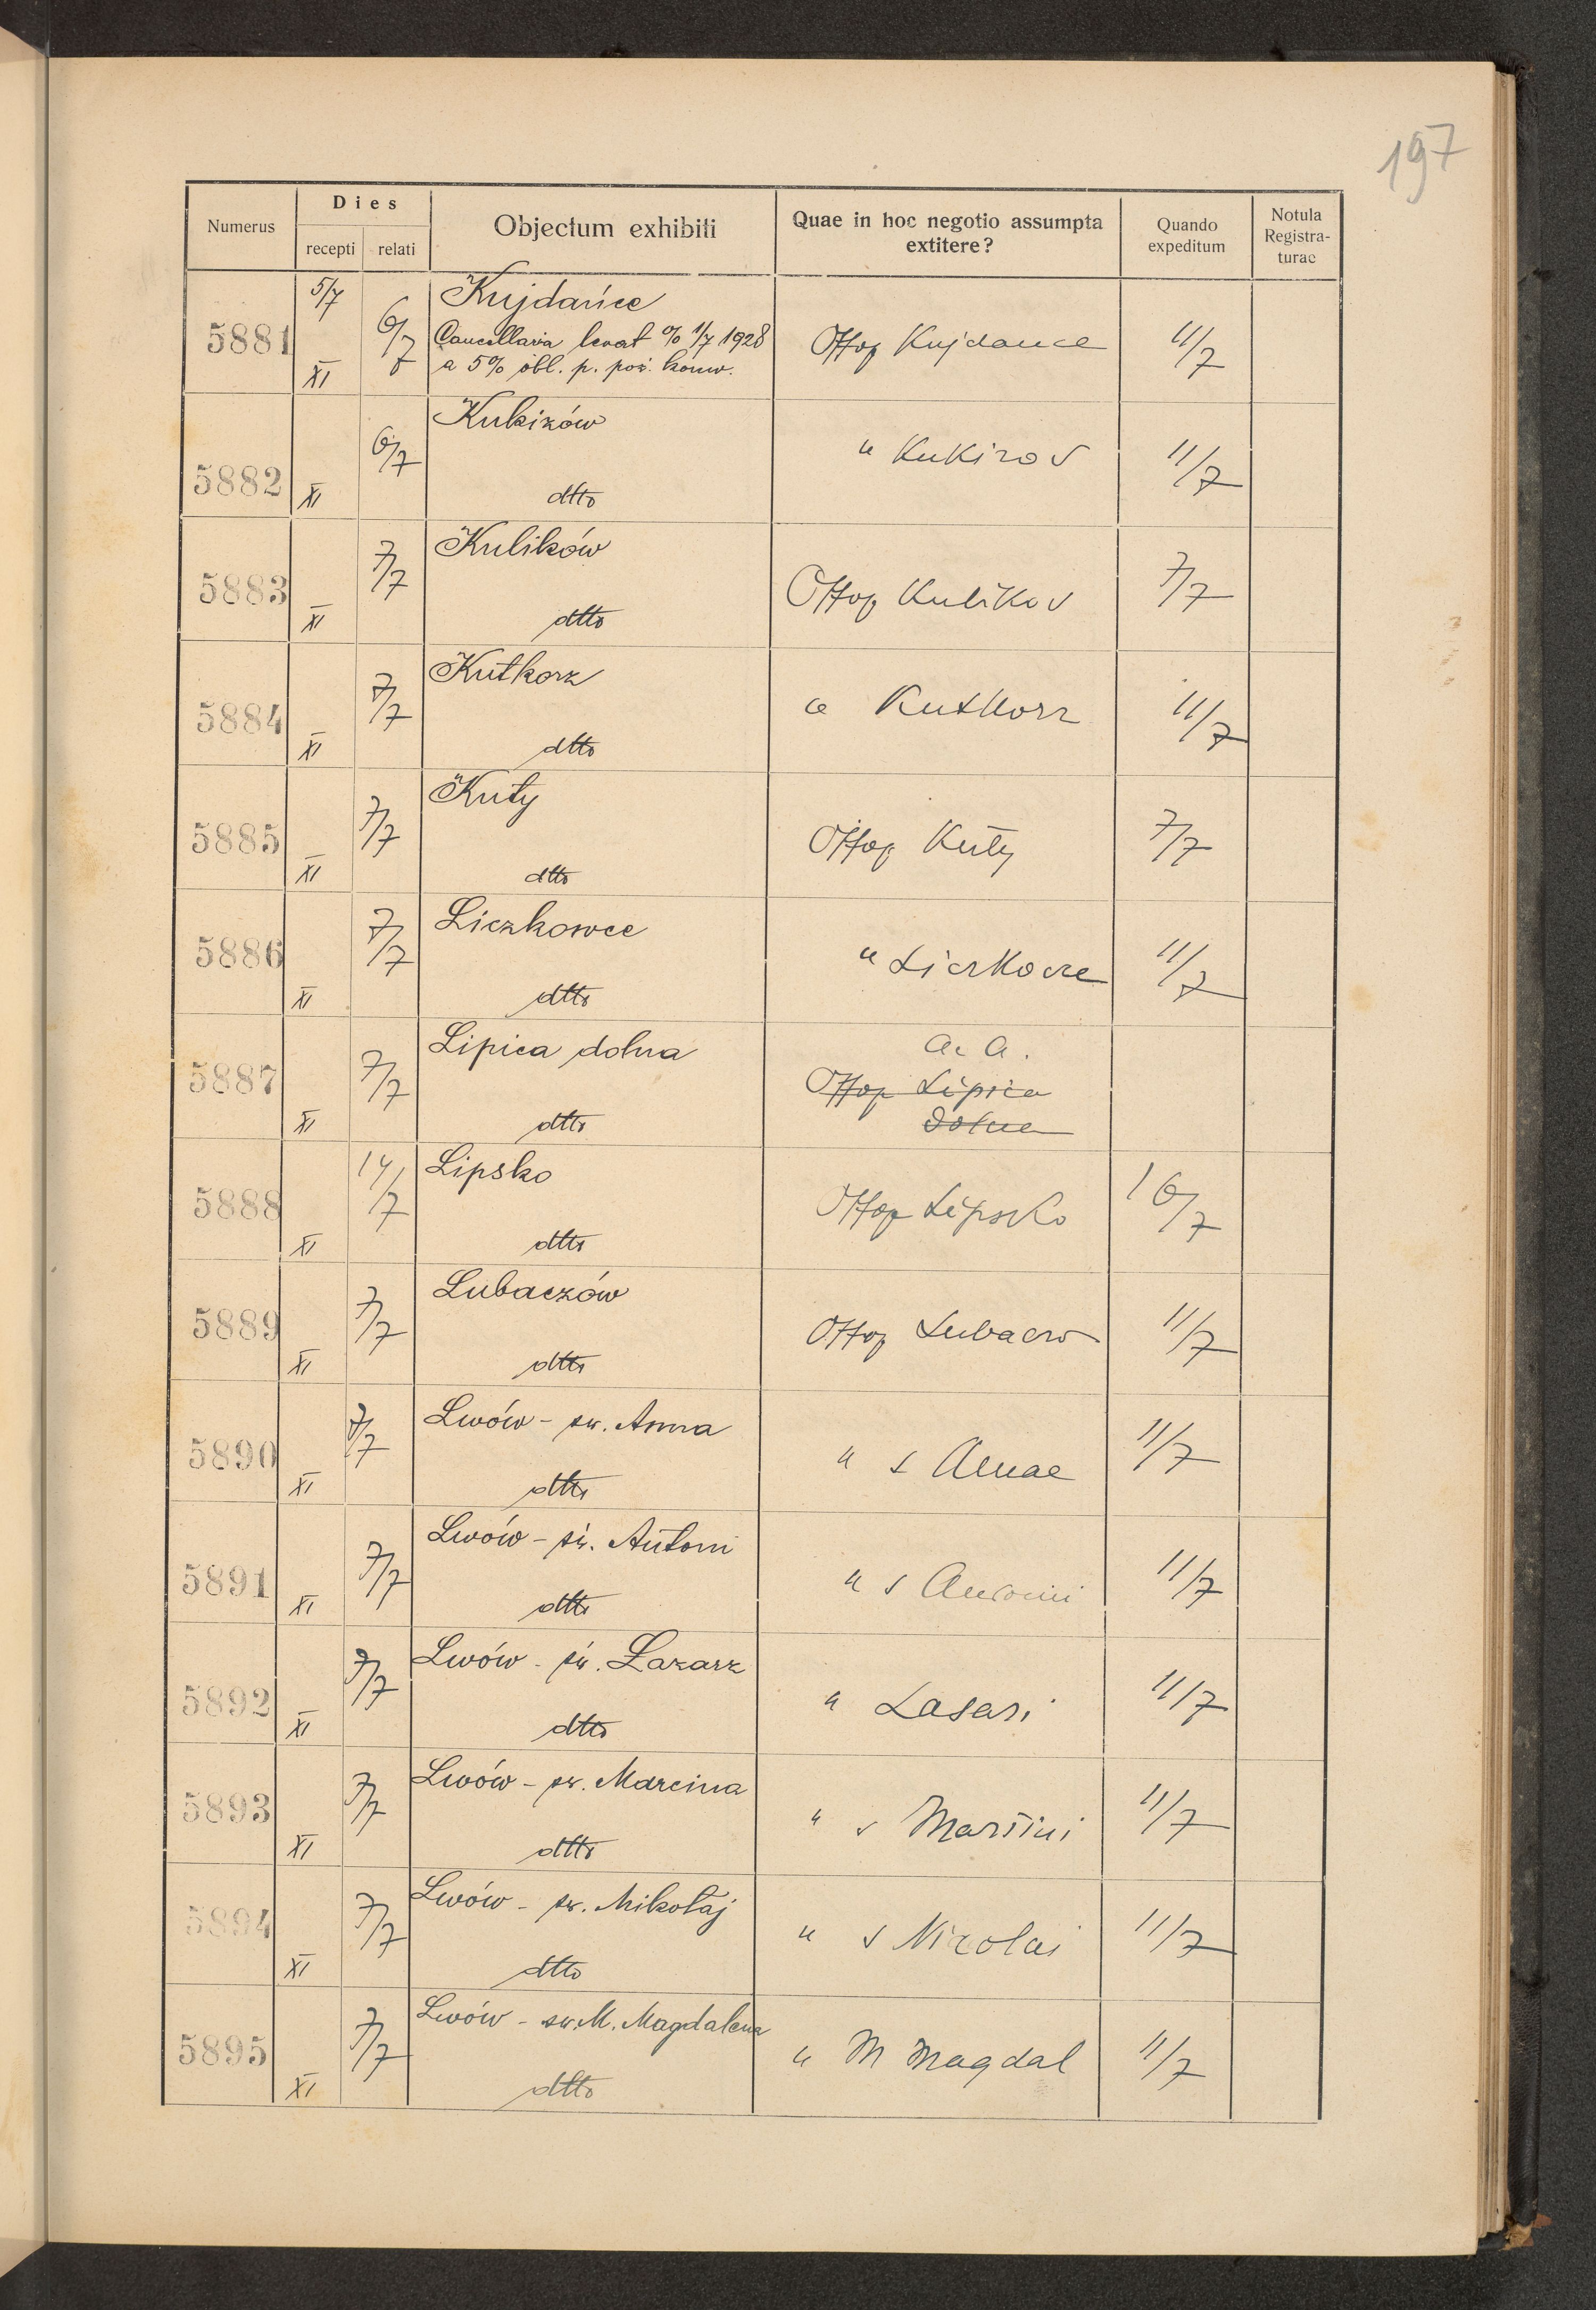 197
Numerus Dies recepti relati Objectum exhibiti Quae in hoc negotio assumpta extitere? Quando expeditum Notula Registra-turae
5881 5/7 XI 6/7 Kujdańce
Cancellaria levat % 1/7 1928
a 5% obl. p. poż. konw.
Kujdance 11/7
5882 XI 6/7 Kukizów
dtto
" Kukizov 11/7
5883 XI 7/7 Kulików
dtto
Kulikov 7/7
5884 XI 7/7 Kutkorz
dtto
" Kutkorz 11/7
5885 XI 7/7 Kuty
dtto
Kuty 7/7
5886 XI 7/7 Liczkowce
dtto
" Liczkovce 11/7
5887 XI 7/7 Lipica dolna
dtto
a. a.
Lipica
dolna
5888 XI 14/7 Lipsko
dtto
Lipsko 16/7
5889 XI 7/7 Lubaczów
dtto
Lubaczo 11/7
5890 XI 7/7 Lwów - św. Anna
dtto
" s Annae 11/7
5891 XI 7/7 Lwów - św. Antoni
dtto
" s Antonii 11/7
5892 XI 7/7 Lwów - św. Łazarz
dtto
" Lasari 11/7
5893 XI 7/7 Lwów - św. Marcina
dtto
" s Martini 11/7
5894 XI 7/7 Lwów - św. Mikołaj
dtto
" s Nicolai 11/7
5895 XI 7/7 Lwów - św. M. Magdalena
dtto
" M Magdal 11/7